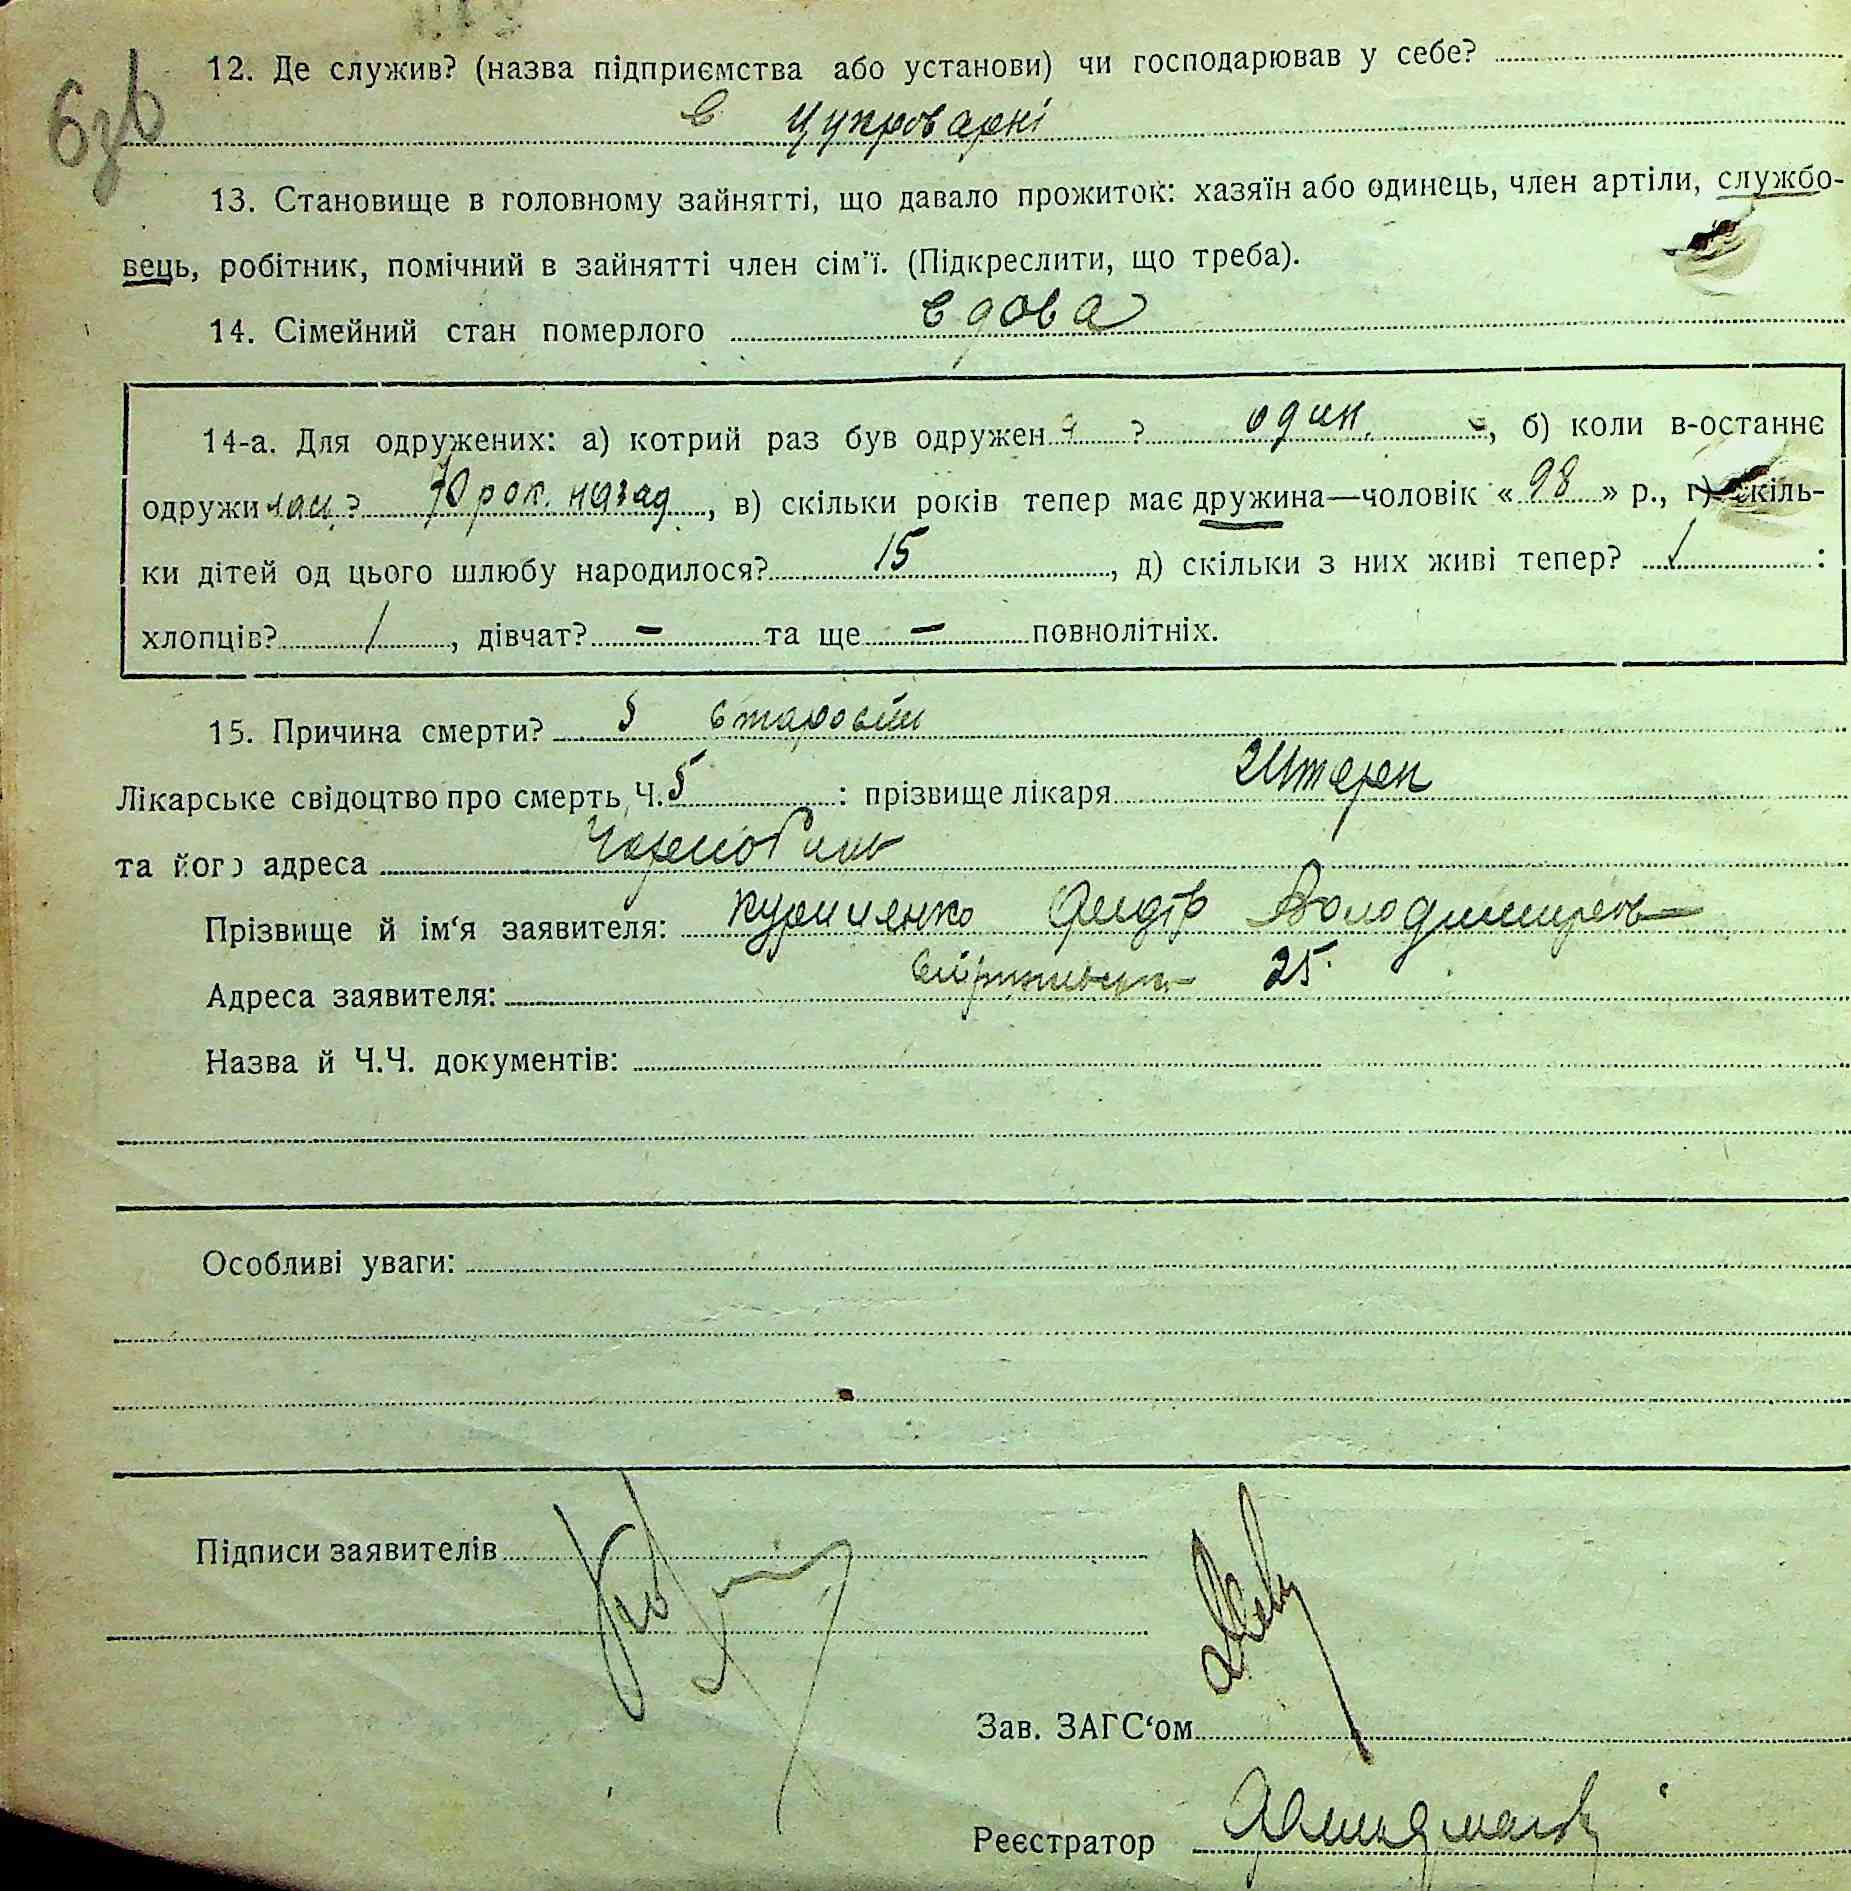 6зв
12. Де служив? (назва підприємства або установи) чи господарював у себе?
в цукроварні
13. Становище в головному зайнятті, що давало прожиток: хазяїн або одинець, член артіли, службо-
вець, робітник, помічний в зайнятті член сім'ї. (Підкреслити, що треба).
14. Сімейний стан померлого вдова
14-а. Для одружених: а) котрий раз був одружен ? один, б) коли в-останнє
одружи ? 70 рок. назад, в) скільки років тепер має дружина—чоловік « 98 » р., г) скіль-
ки дітей од цього шлюбу народилося? 15, д) скільки з них живі тепер? 1 :
хлопців? 1, дівчат? — та ще — повнолітніх.
15. Причина смерти?
Лікарське свідоцтво про смерть Ч. 5 : прізвище лікаря Штерен
та його адреса Чорнобиль
Прізвище й ім‘я заявителя: Володимиров
Адреса заявителя: 25
Назва й Ч.Ч. документів:
Особливі уваги:
Підписи заявителів
Зав. ЗАГС‘ом
Реєстратор